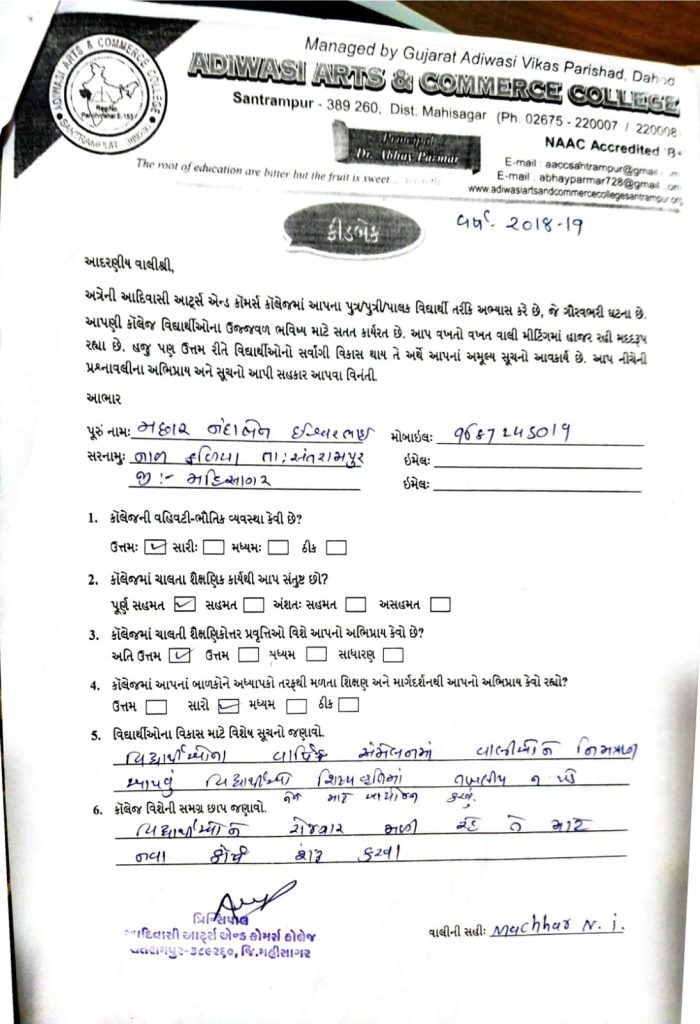 Managed by Gujarat Adiwasi Vikas Parishad, Dahod
ADIWASI ARTS & COMMERCE COLLEGE
Santrampur - 389 260, Dist. Mahisagar (Ph. 02675 - 220007 / 220008)
ADIWASI ARTS & COMMERCE COLLEGE
SANTRAMPUR
Principal
Dr. Abhay Parmar
NAAC Accredited 'B+
The root of education are bitter but the fruit is sweet...
E-mail : aaccsahtrampur@gmail
E-mail : abhayparmar728@gmail
www.adiwasiartsandcommercecollegesantrampur.org
ફીડબેક
વર્ષ. 2018-19
આદરણીય વાલીશ્રી,
અત્રેની આદિવાસી આર્ટ્સ એન્ડ કૉમર્સ કૉલેજમાં આપના પુત્ર/પુત્રી/પાલક વિદ્યાર્થી તરીકે અભ્યાસ કરે છે, જે ગૌરવભરી ઘટના છે.
આપણી કૉલેજ વિદ્યાર્થીઓના ઉજ્જવળ ભવિષ્ય માટે સતત કાર્યરત છે. આપ વખતો વખત વાલી મીટિંગમાં હાજર રહી મદદરૂપ
રહ્યા છે. હજુ પણ ઉત્તમ રીતે વિદ્યાર્થીઓનો સર્વાંગી વિકાસ થાય તે અર્થે આપનાં અમૂલ્ય સૂચનો આવકાર્ય છે. આપ નીચેની
પ્રશ્નાવલીના અભિપ્રાય અને સૂચનો આપી સહકાર આપવા વિનંતી.
આભાર
પૂરું નામઃ મછાર નંદાબેન ઈશ્વરભાઈ મોબાઈલઃ 9687245019
સરનામુઃ નાળ ફળિયા તા: સંતરામપુર ઇમેલઃ
જી :- મહિસાગર ઇમેલઃ
1. કૉલેજની વહિવટી-ભૌતિક વ્યવસ્થા કેવી છે?
ઉત્તમઃ ✓ સારીઃ મધ્યમઃ ઠીક
2. કૉલેજમાં ચાલતા શૈક્ષણિક કાર્યથી આપ સંતુષ્ટ છો?
પૂર્ણ સહમત ✓ સહમત અંશતઃ સહમત અસહમત
3. કૉલેજમાં ચાલતી શૈક્ષણિકોત્તર પ્રવૃત્તિઓ વિશે આપનો અભિપ્રાય કેવો છે?
અતિ ઉત્તમ ✓ ઉત્તમ મધ્યમ સાધારણ
4. કૉલેજમાં આપનાં બાળકોને અધ્યાપકો તરફથી મળતા શિક્ષણ અને માર્ગદર્શનથી આપનો અભિપ્રાય કેવો રહ્યો?
ઉત્તમ સારો ✓ મધ્યમ ઠીક
5. વિદ્યાર્થીઓના વિકાસ માટે વિશેષ સૂચનો જણાવો.
વિદ્યાર્થીઓના વાર્ષિક સંમેલનમાં વાલીઓને નિમંત્રણ
આપવું વિદ્યાર્થીઓ શિષ્યવૃતિમાં તકલીફ ન પડે
તેના માટે આયોજન કરવું.
6. કૉલેજ વિશેની સમગ્ર છાપ જણાવો.
વિદ્યાર્થીઓને રોજગાર મળી રહે તે માટે
નવા કોર્ષ શરૂ કરવા
પ્રિન્સિપાલ
આદિવાસી આર્ટ્સ એન્ડ કોમર્સ કોલેજ
સંતરામપુર-૩૮૯૨૬૦, જિ.મહીસાગર
વાલીની સહીઃ Machhar N. I.